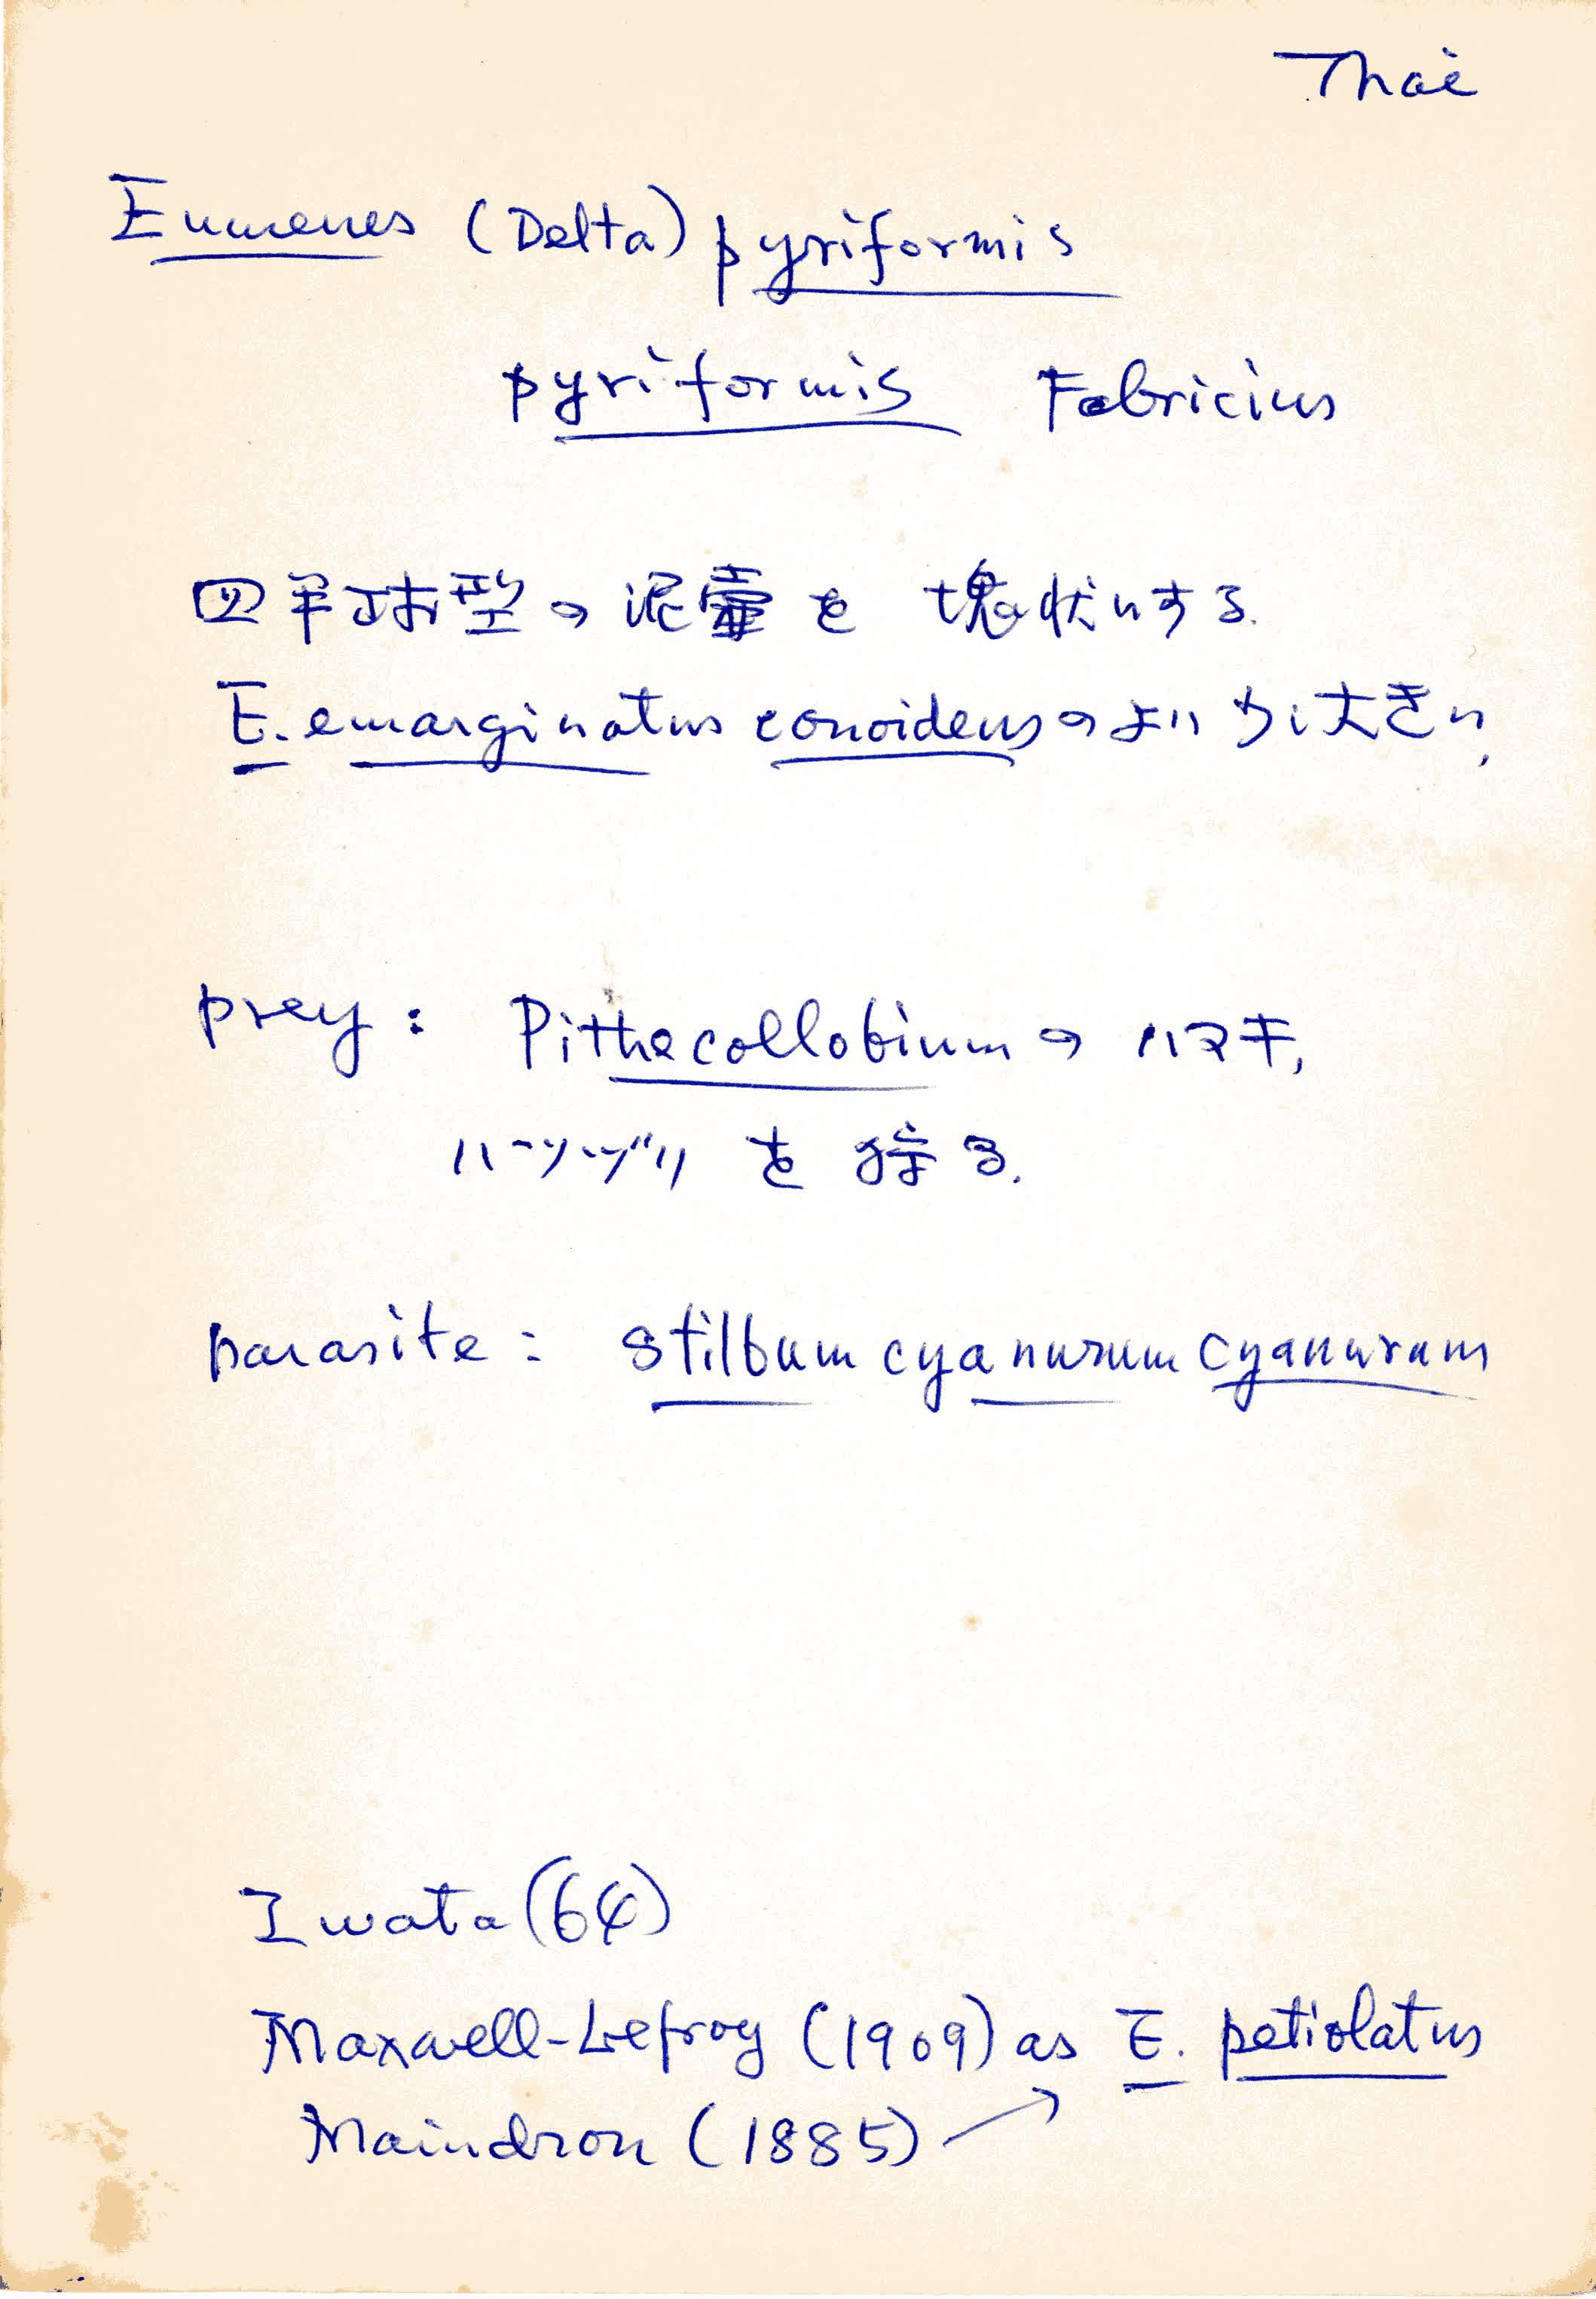 Thai
Eumenes (Delta) pyriformis
pyriformis Fabricius
四半球型の泥壷を塊状にする.
E. emarginatus conoideusのより少し大きい,
prey: Pithecollobium の ハマキ,
ハーツヅリ を 狩る.
parasite: Stilbum cyanurum cyanurum
Iwata (64)
Maxwell-Lefroy (1909) as E. petiolatus
Maindron (1885) ↗